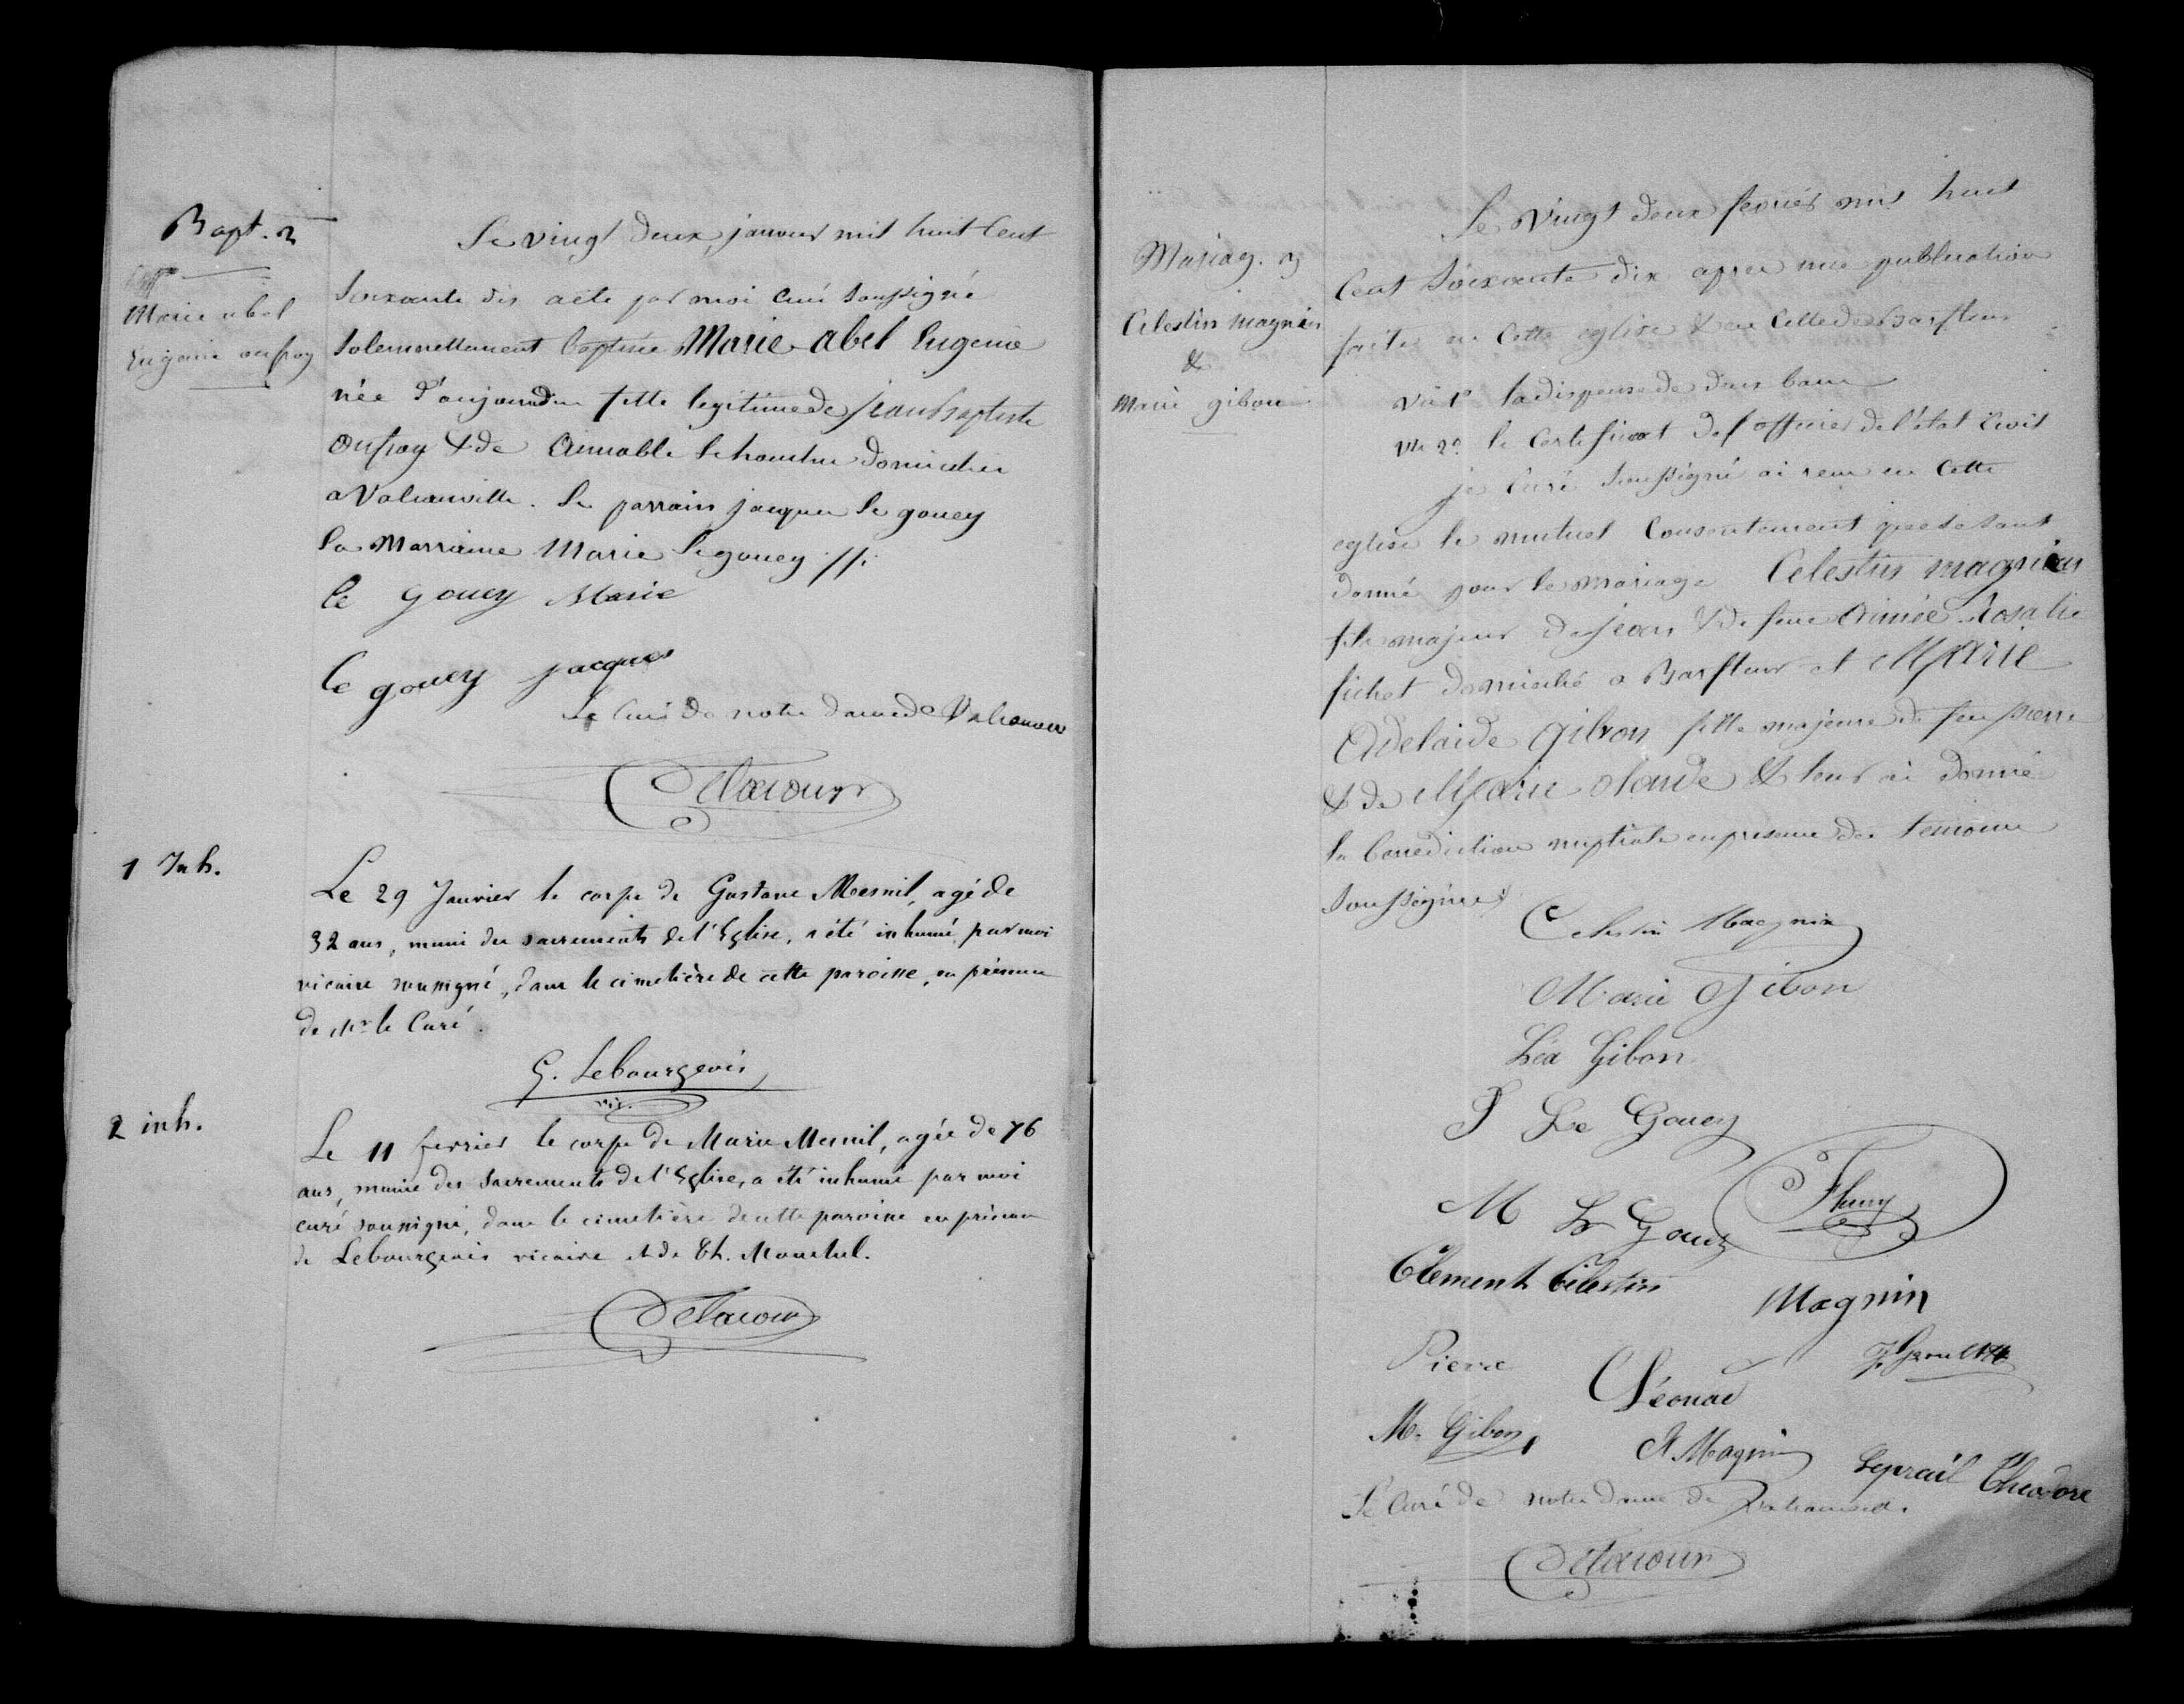 Bapt. 2
Marie abel
Eugenie onfroy
Le vingt deux janvier mil huit cent
soixante dix a été par moi curé soussigné
solemnellement baptisée Marie abel Eugenie
née d'aujourdui fille legitime de jean baptiste
onfroy & de aimable domiciliés
a Valcanville. Le parrain jacques le gouey
la marraine Marie le gouey
le gouey Marie
le gouey jacques
Le curé de notre dame de
Delacour
1 Inh.
Le 29 Janvier le corps de Gustave Mesnil, agé de
32 ans, muni des sacrements de l'Eglise, a été inhumé par moi
vicaire soussigné, dans le cimetière de cette paroisse, en présence
de Mr le Curé.
G. Lebourgeois
vic.
2 inh.
Le 11 fevrier le corps de Marie Mesnil, agée de 76
ans, munie des Sacrements de l'Eglise, a été inhumé par moi
curé soussigné, dans le cimetière de cette paroisse en présence
de Lebourgeois vicaire et de Ch.
Delacour
Mariag. 3
Celestin magnin
&
Marie gibon
Le vingt deux fevrier mil huit
cent soixante dix apres une publication
faite en cette eglise & en celle de Barfleur
vu 1º la dispense de deux bans
vu 2º le certificat de l'officier de l'état civil
je curé soussigné ai recu en cette
eglise le mutuel consentement que se sont
donné pour le mariage Celestin magnin
fils majeur de jean & de feue Aimée Rosalie
fichet domicilié a Barfleur et Marie
Adelaide Gibon fille majeure de feu pierre
& de Marie & leur ai donné
la benediction nuptiale en presence des temoins
soussignés
Celestin Magnin
Marie Gibon
Léa Gibon
P Le Gouey
M Le Gouey
Fleury
Clement Célestin
Magnin
Pierre
Léonor
M. Gibon
A Magnin
Théodore
Le Curé de notre dame de
Delacour